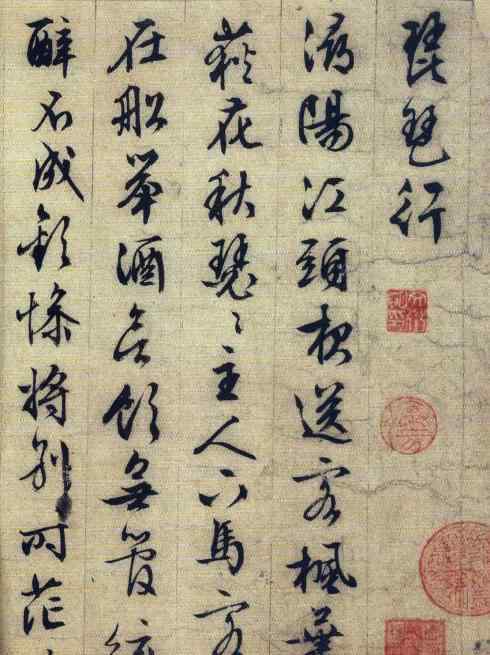 琵琶行
潯陽江頭夜送客楓葉
荻花秋瑟々主人下馬客
在船舉酒欲飲無管絃
醉不成歡慘將別々時茫